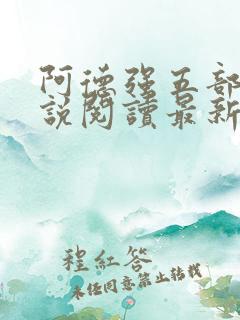 阿德强五部
說閱讀最新
程紅答
未经同意禁止转载